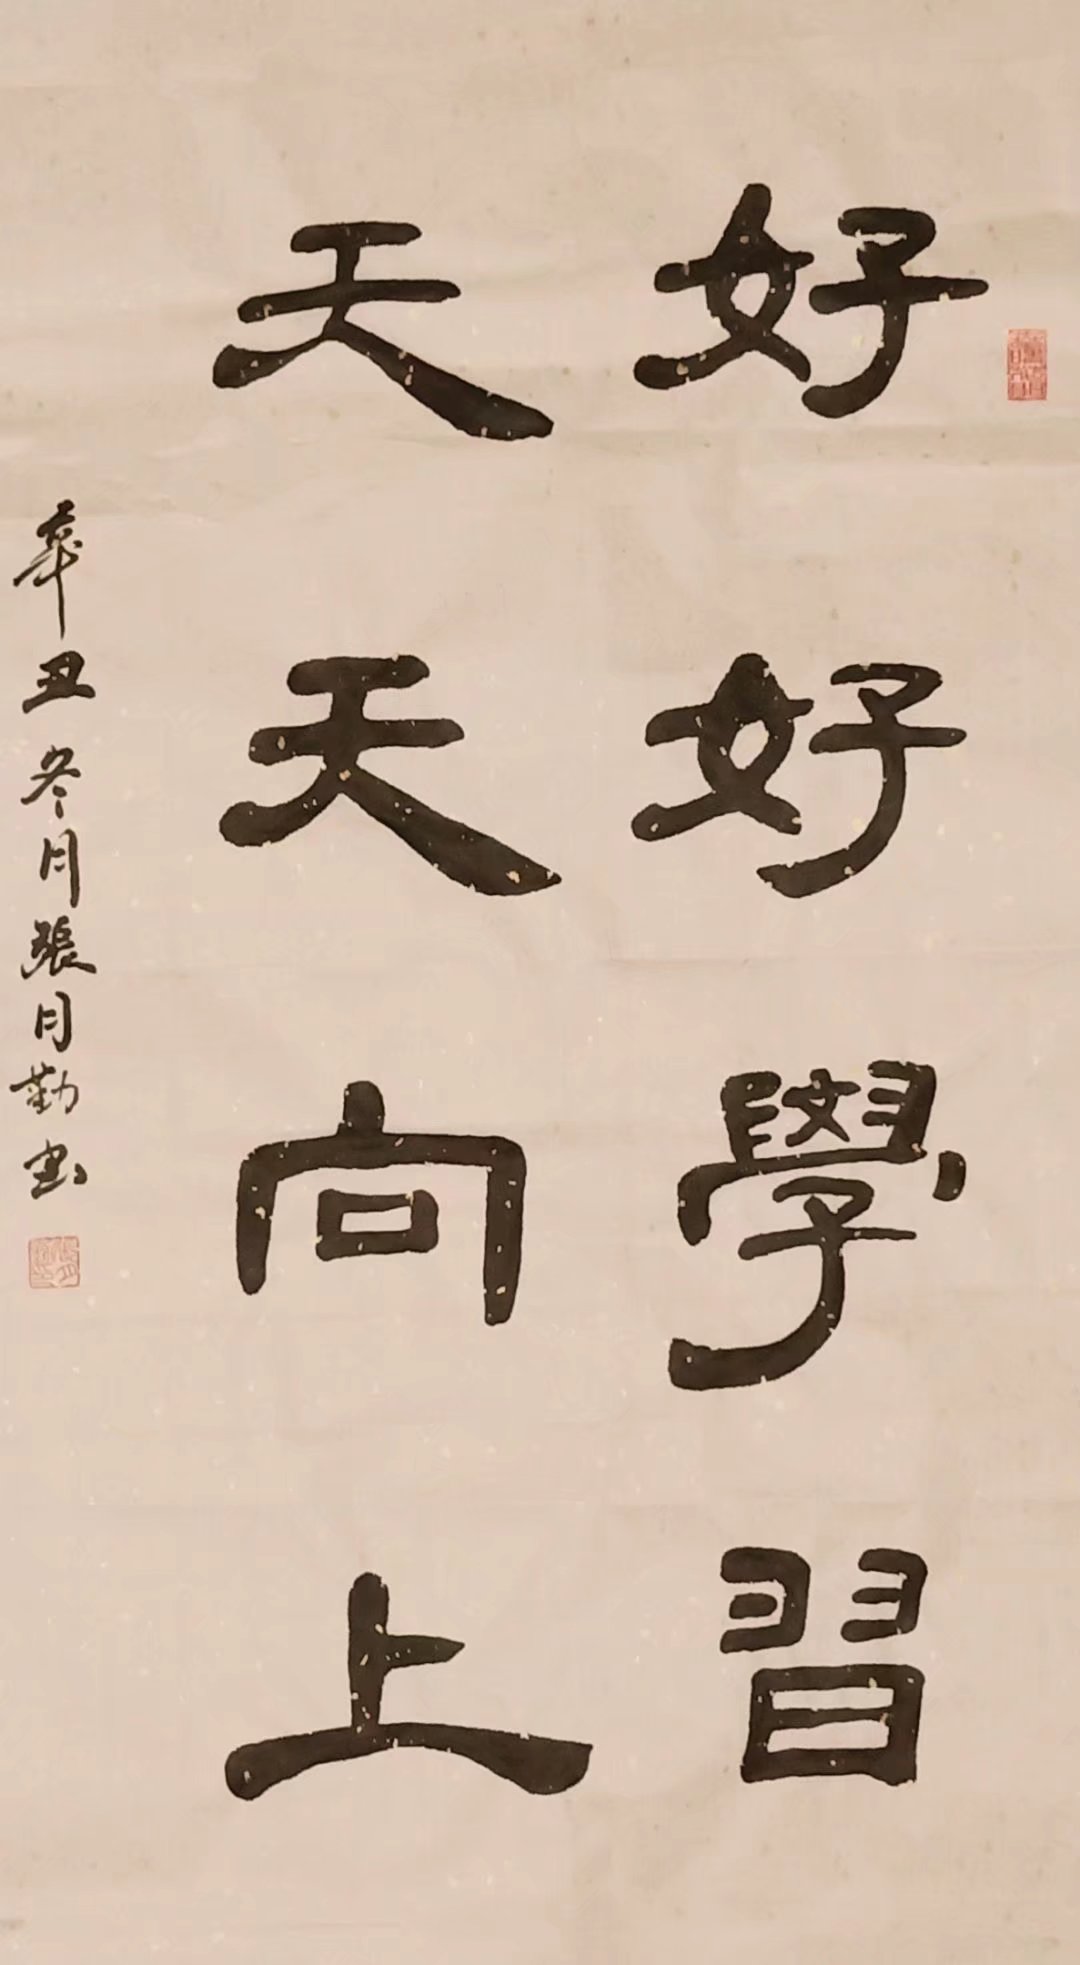 好好學習
天天向上
辛丑冬月張月勤书